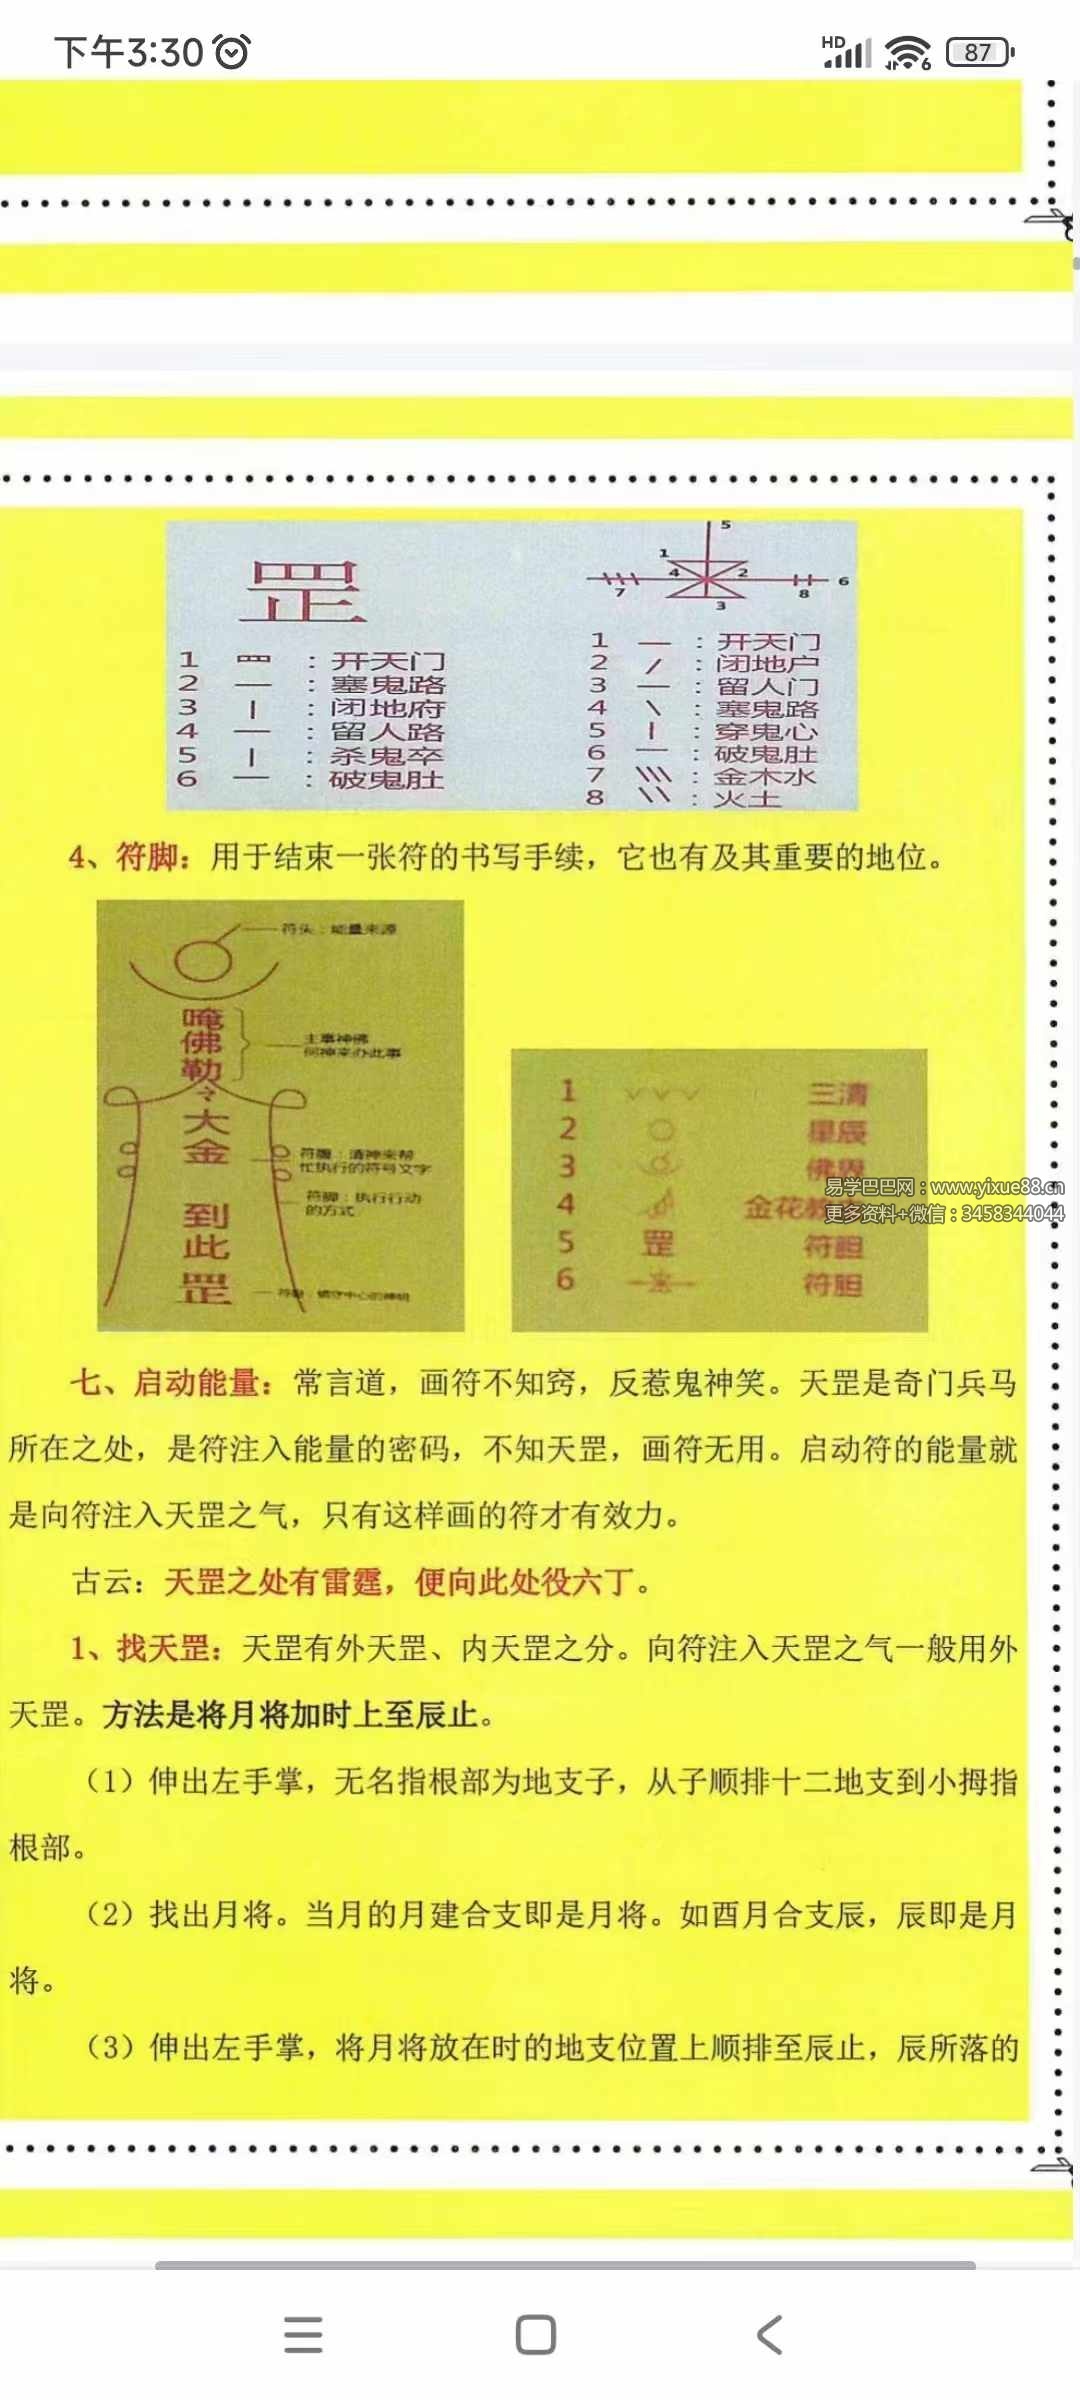 下午3:30
HD
6
87
罡
1 : 开天门
2 一 : 塞鬼路
3 丨 : 闭地府
4 一 : 留人路
5 丨 : 杀鬼卒
6 一 : 破鬼肚
5
1
4 2
7 8 6
3
1 一 : 开天门
2 ノ : 闭地户
3 一 : 留人门
4 \ : 塞鬼路
5 丨 : 穿鬼心
6 一 : 破鬼肚
7 \\\ : 金木水
8 \\ : 火土
4、符脚：用于结束一张符的书写手续，它也有及其重要的地位。
符头：能量来源
唵佛勒令
主事神佛
何神来办此事
大金
到此罡
符腹：请神来帮
忙执行的符号文字
符脚：执行行动
的方式
1 三清
2 星辰
3 佛界
4 金花教
5 罡 符胆
6 符胆
易学巴巴网：www.yixue88.cn
更多资料+微信：3458344044
七、启动能量：常言道，画符不知窍，反惹鬼神笑。天罡是奇门兵马
所在之处，是符注入能量的密码，不知天罡，画符无用。启动符的能量就
是向符注入天罡之气，只有这样画的符才有效力。
古云：天罡之处有雷霆，便向此处役六丁。
1、找天罡：天罡有外天罡、内天罡之分。向符注入天罡之气一般用外
天罡。方法是将月将加时上至辰止。
（1）伸出左手掌，无名指根部为地支子，从子顺排十二地支到小拇指
根部。
（2）找出月将。当月的月建合支即是月将。如酉月合支辰，辰即是月
将。
（3）伸出左手掌，将月将放在时的地支位置上顺排至辰止，辰所落的